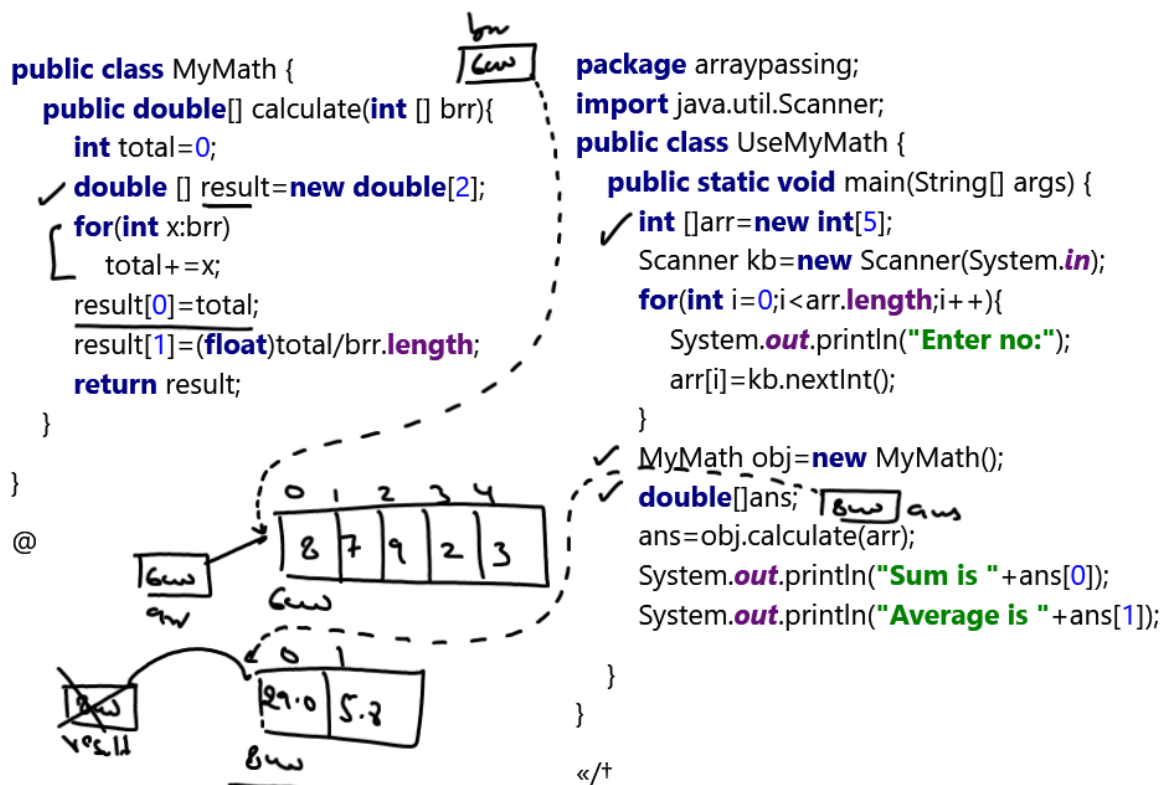 public class MyMath {
public double[] calculate(int [] brr){
int total=0;
double [] result=new double[2];
for(int x:brr)
total+=x;
result[0]=total;
result[1]=(float)total/brr.length;
return result;
}
}
@
brr
6000
package arraypassing;
import java.util.Scanner;
public class UseMyMath {
public static void main(String[] args) {
int []arr=new int[5];
Scanner kb=new Scanner(System.in);
for(int i=0;i<arr.length;i++){
System.out.println("Enter no:");
arr[i]=kb.nextInt();
}
MyMath obj=new MyMath();
double[]ans; 8000 ans
ans=obj.calculate(arr);
System.out.println("Sum is "+ans[0]);
System.out.println("Average is "+ans[1]);
}
}
«/†
0 1 2 3 4
8 7 9 2 3
6000
arr
6000
0 1
29.0 5.8
8000
result
8000